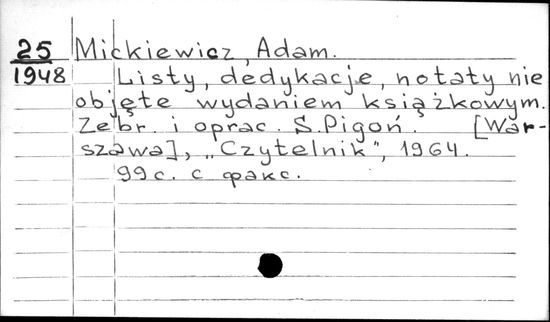 25
1948
Mickiewicz, Adam.
Listy, dedykacje, notaty nie
objęte wydaniem książkowym.
Zebr. i oprac. S.Pigoń. [War-
szawa], „Czytelnik", 1964.
99с. с факс.